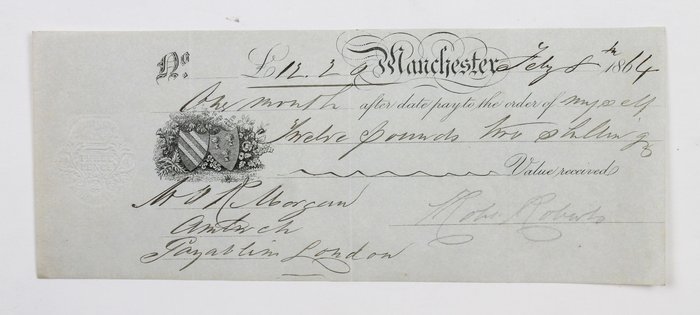 No. £12.2.0 Manchester Feby 8th 1864
One month after date pay to the order of myself
Twelve pounds two shillings
Value received
Mr R Morgan
Robt Roberts
Payable in London